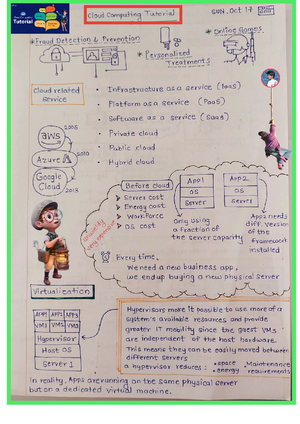 Tutorial
Cloud Computing Tutorial
SUN, Oct 17
* Fraud Detection & Prevention
* Personalized
Treatments
* Online Games
Cloud related
Service
• Infrastructure as a service (IaaS)
• Platform as a service (PaaS)
• Software as a service (SaaS)
• Private cloud
• Public cloud
• Hybrid cloud
aws
2006
Azure
2010
Google
Cloud
2013
Before cloud
➤ Server cost
➤ Energy cost
➤ Workforce
➤ OS cost
App1
OS
Server
App2
OS
Server
Only using
a fraction of
the server capacity
Apps needs
diff. Version
of the
framework
installed
Every time,
We need a new business app,
we end up buying a new physical server
Virtualization
App1 App2 App3
VM1 VM2 VM3
Hypervisor
Host OS
Server 1
Hypervisors make it possible to use more of a
system's available resources and provide
greater IT mobility since the guest VMs
are independent of the host hardware.
This means they can be easily moved between
different servers
a hypervisor reduces:
• space
• energy
• Maintenance
requirements
In reality, Apps are running on the same physical server
but on a dedicated virtual machine.